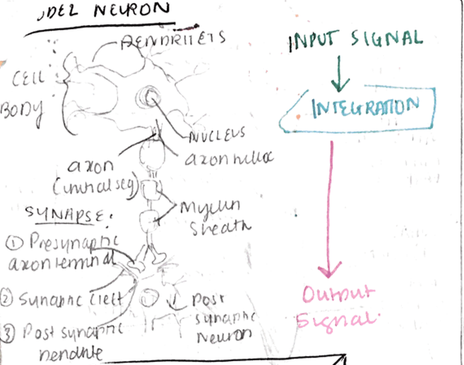 DEL NEURON
DENDRITETS
CELL
BODY
NUCLEUS
axon hilloc
axon
(initial seg)
Myelin
Sheath
SYNAPSE:
① Presynaptic
axon terminal
② Synaptic cleft
③ Post synaptic
dendrite
Post
synaptic
Neuron
INPUT SIGNAL
INTEGRATION
Output
Signal